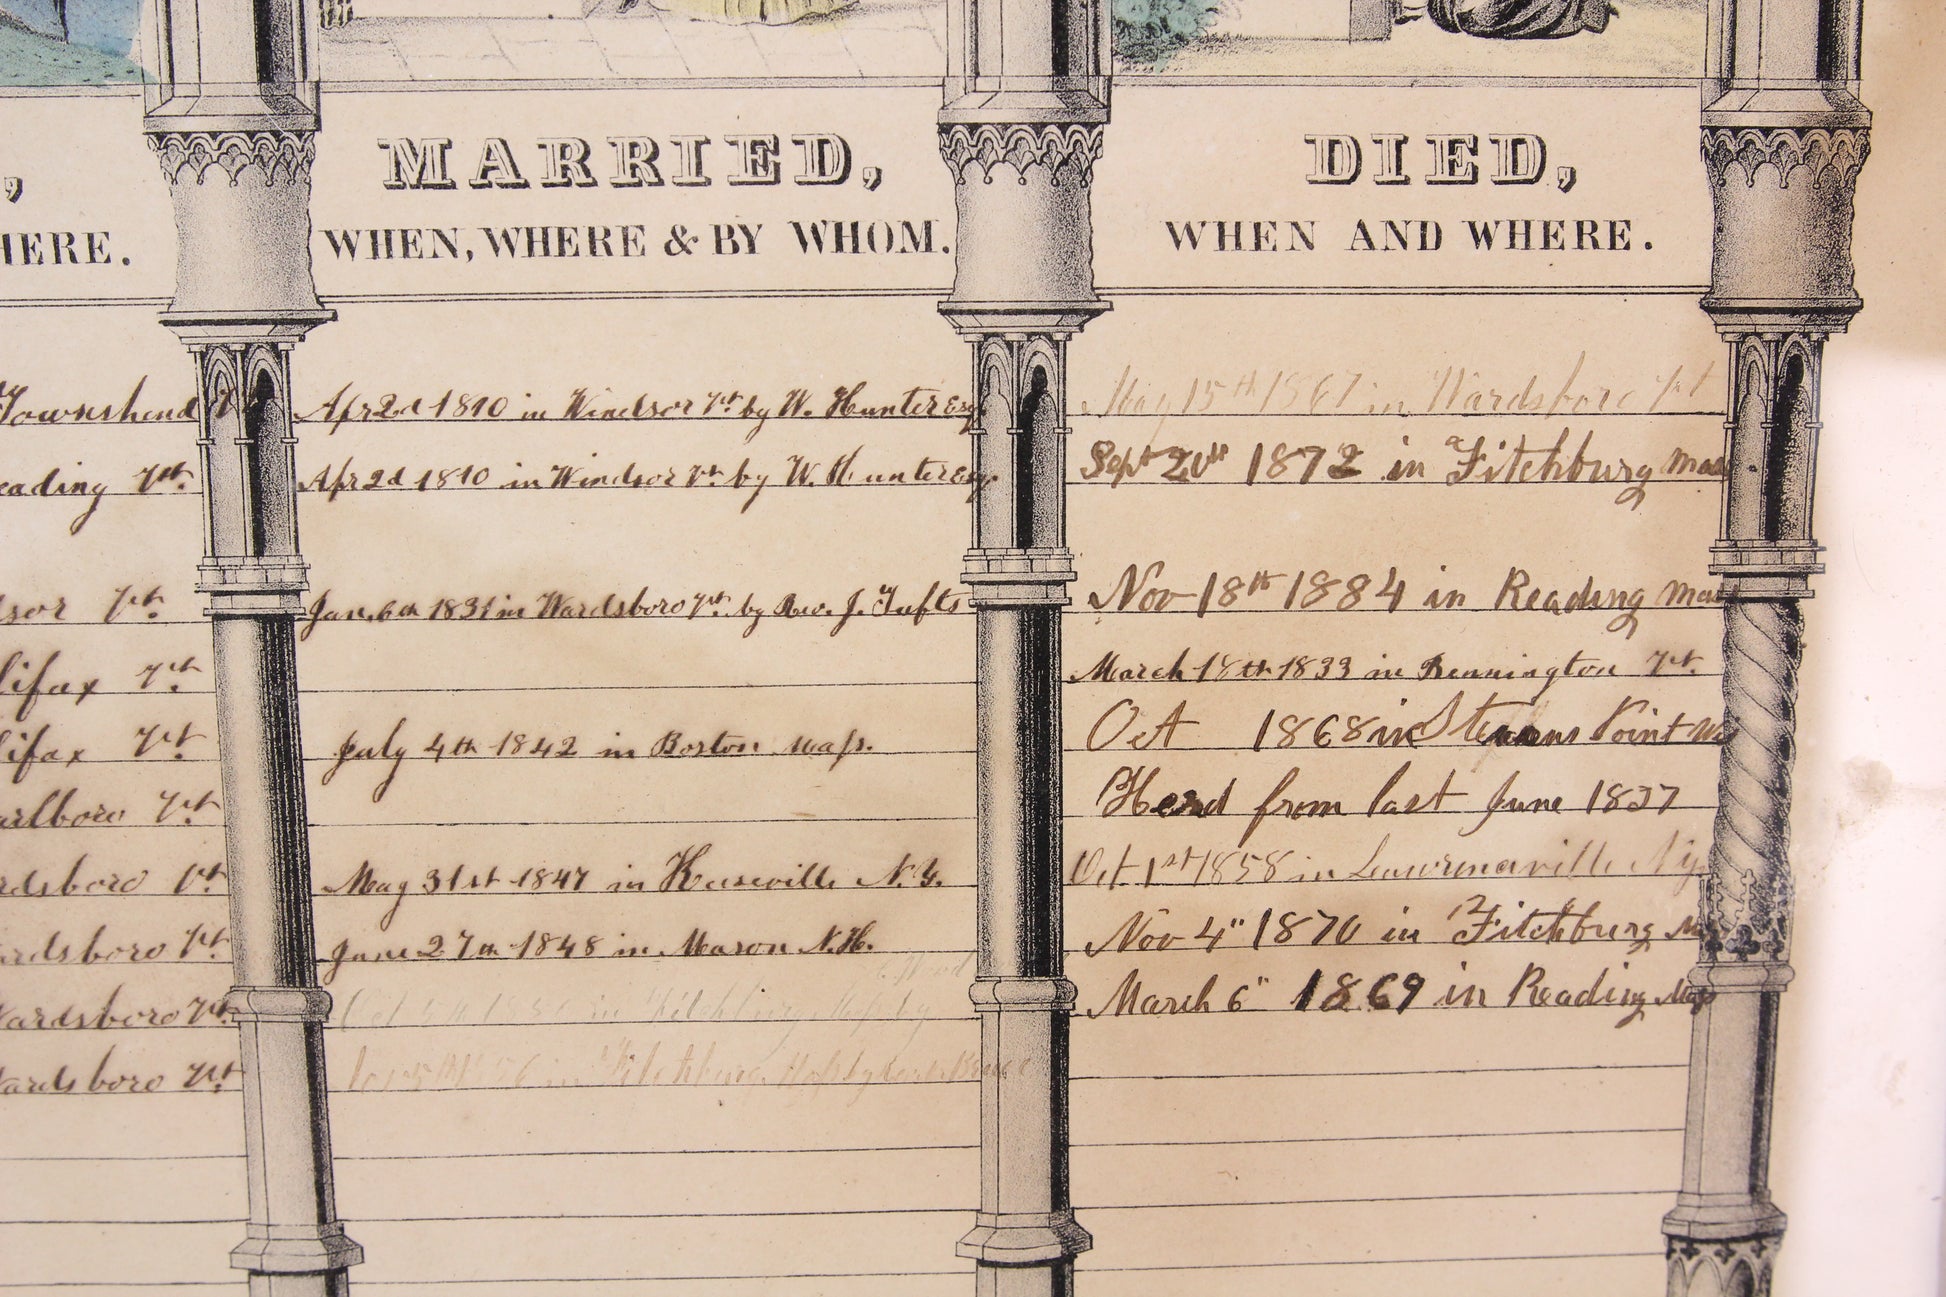 , MARRIED, DIED,
HERE. WHEN, WHERE & BY WHOM. WHEN AND WHERE.
Townshend Vt Apr 2d 1810 in Windsor Vt. by W. Hunter Esq. May 15th 1867 in Wardsboro Vt
eading Vt. Apr 2d 1810 in Windsor Vt. by W. Hunter Esq. Sept 20th 1872 in Fitchburg Mass
sor Vt. Jan. 6th 1831 in Wardsboro Vt. by Rev. J. Tufts Nov 18th 1884 in Reading Mass
lifax Vt. March 18th 1833 in Bennington Vt.
lifax Vt. July 4th 1842 in Boston Mass. Oct 1868 in Stevens Point Wis
arlboro Vt. Herd from last June 1837
rdsboro Vt. May 31st 1847 in Keeseville N.Y. Oct 1st 1858 in Ny.
ardsboro Vt. June 27th 1848 in Mason N.H. Nov 4" 1870 in Fitchburg Ms
Wardsboro Vt. Oct in Fitchburg by March 6" 1869 in Reading Mass
Wardsboro Vt. in Fitchburg